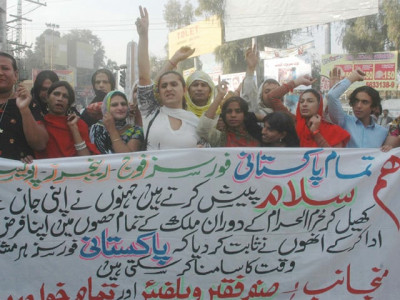 TOLET
تمام پاکستانی فورسز فوج - رینجرز - پولیس
ہم
سلام پیش کرتے ہیں جنہوں نے اپنی جان پے
کھیل کر محرم الحرام کے دوران ملک کے تمام حصوں میں اپنا فرض
ادا کر کے انھوں نے ثابت کر دیا کہ پاکستانی فورسز ہر مشکل
وقت کا سامنا کر سکتی ہیں
منجانب: صنم فقیر ویلفیئر اور تمام خواجہ